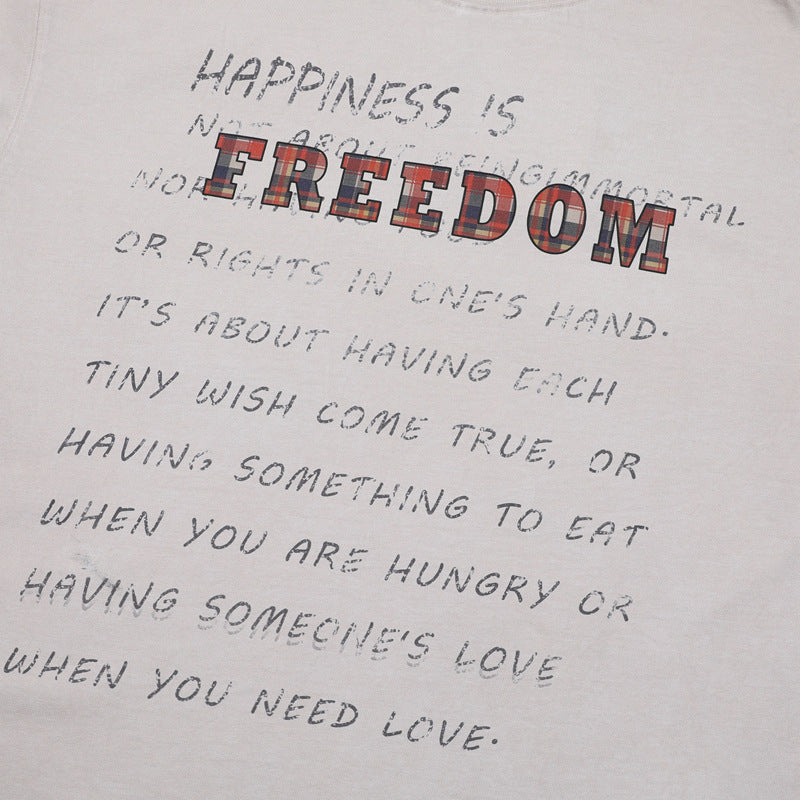 HAPPINESS IS
NOT ABOUT BEINGIMMORTAL
FREEDOM
NOR HAVING FOOD
OR RIGHTS IN ONE'S HAND.
IT'S ABOUT HAVING EACH
TINY WISH COME TRUE, OR
HAVING SOMETHING TO EAT
WHEN YOU ARE HUNGRY OR
HAVING SOMEONE'S LOVE
WHEN YOU NEED LOVE.